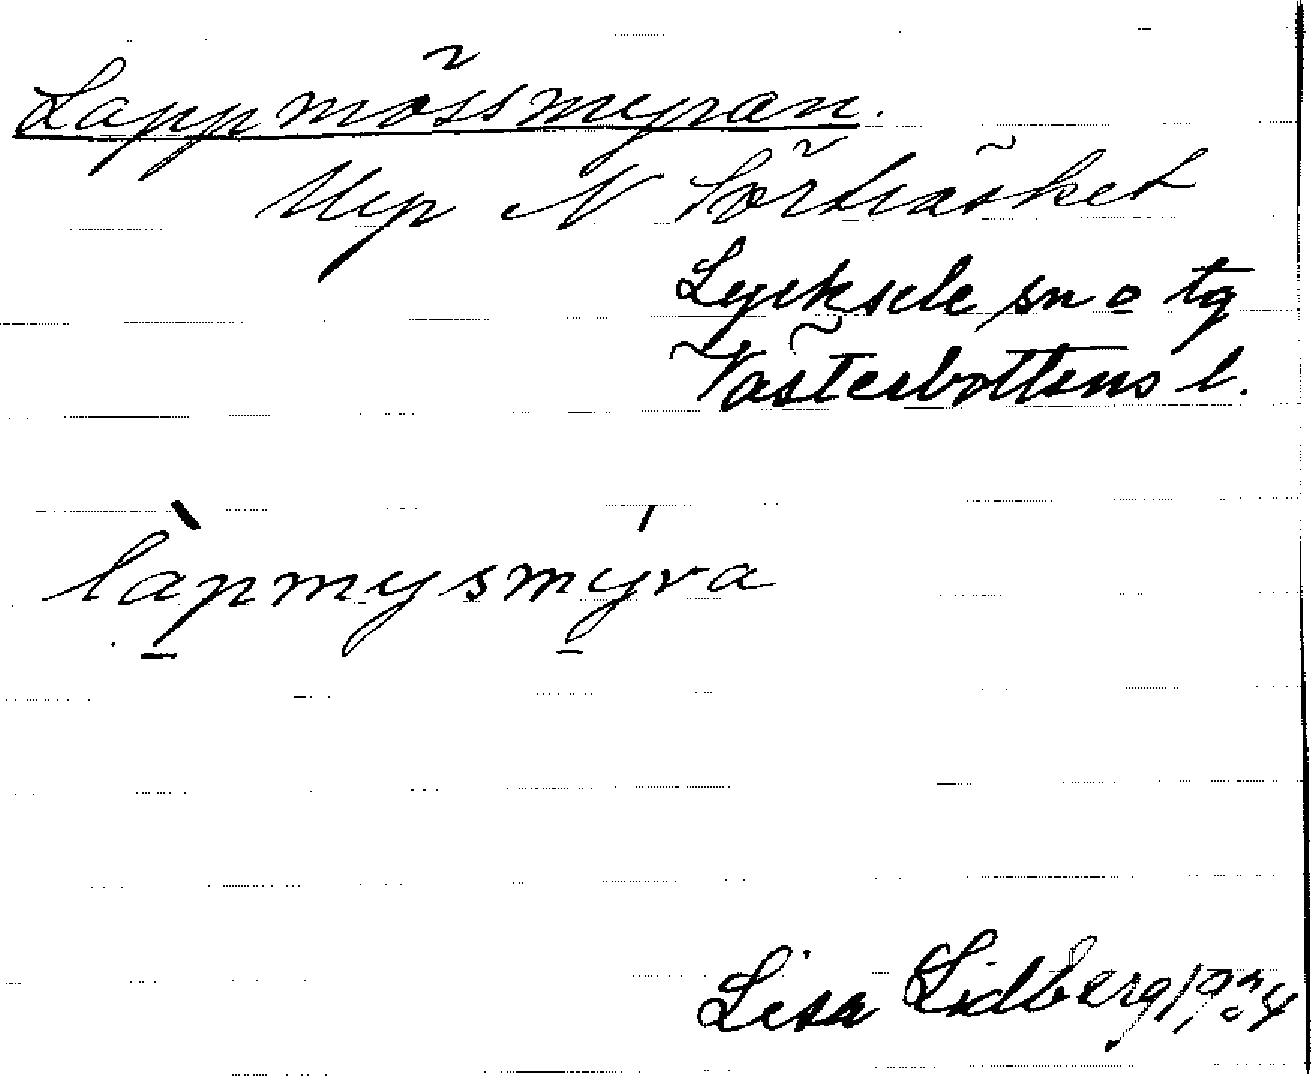 Lappmössmyran.
Myr N Sörträsket
Lycksele sn o tg
Västerbottens l.
làpmysmýra
Lisa Lidberg